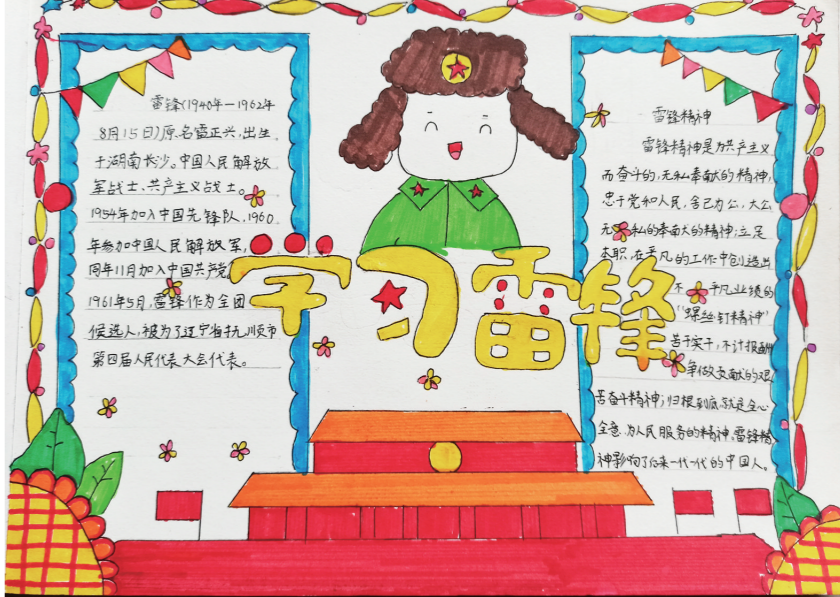 雷锋(1940年-1962年
8月15日)原名雷正兴,出生
于湖南长沙。中国人民解放
军战士、共产主义战士。
1954年加入中国先锋队,1960
年参加中国人民解放军,
同年11月加入中国共产党
1961年5月,雷锋作为全团
候选人,被为了辽宁省抚顺市
第四届人民代表大会代表。
学习雷锋
雷锋精神
雷锋精神是为共产主义
而奋斗的,无私奉献的精神,
忠于党和人民,舍己为公,大公
无私的奉献的精神;立足
本职,在平凡的工作中创造出
不平凡业绩的
"螺丝钉精神"
苦干实干,不计报酬
争做贡献的艰
苦奋斗精神;归根到底就是全心
全意、为人民服务的精神。雷锋精
神影响了后来一代一代的中国人。